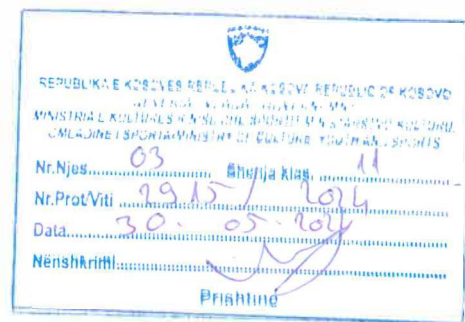 REPUBLIKA E KOSOVËS REPUBLIKA KOSOVA REPUBLIC OF KOSOVO
MINISTRIA E KULTURËS
OMLADINE I SPORTA/MINISTRY OF CULTURE, YOUTH AND SPORTS
Nr.Njes. 03 Shenja klas. 11
Nr.Prot/Viti 2915/ 2024
Data 30. 05. 2024
Nënshkrimi
Prishtinë